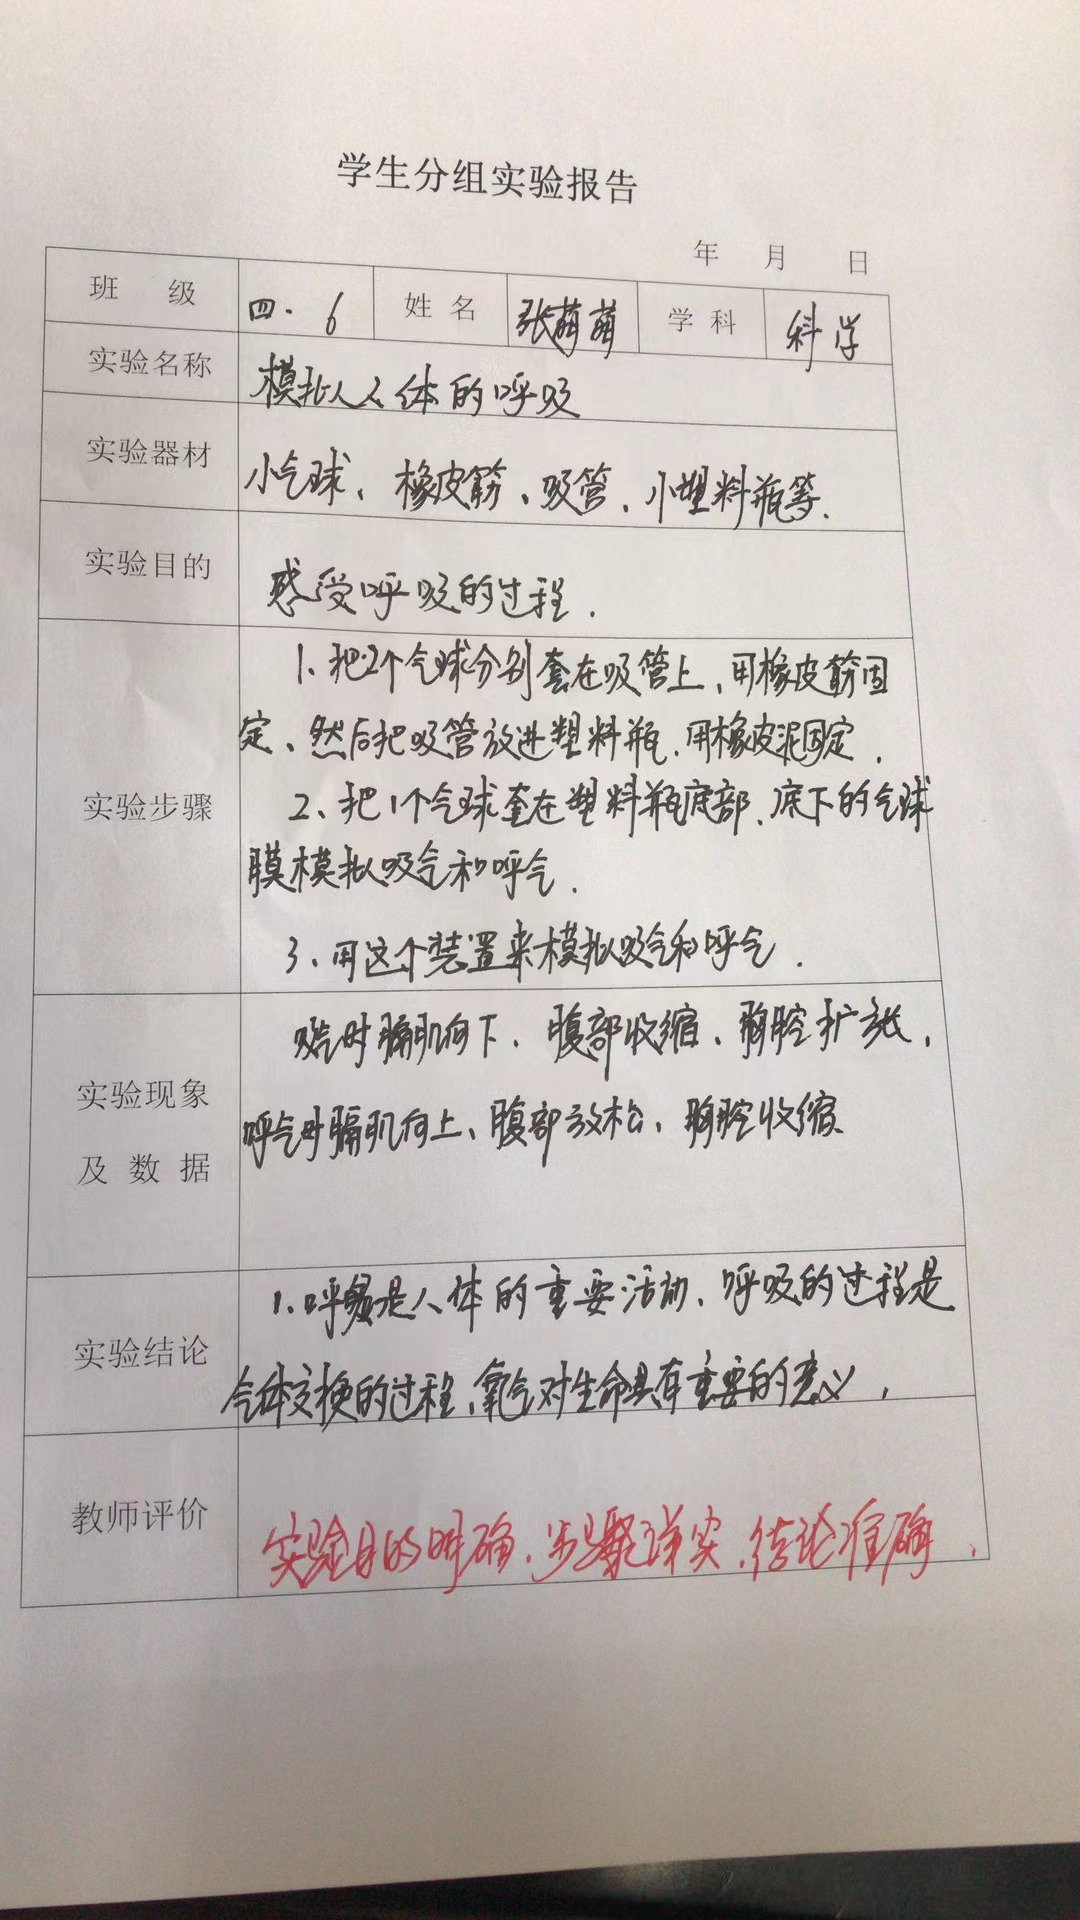 学生分组实验报告
年 月 日
班 级 四.6 姓 名 张萌萌 学 科 科学
实验名称 模拟人体的呼吸
实验器材 小气球、橡皮筋、吸管、小塑料瓶等.
实验目的 感受呼吸的过程.
1、把2个气球分别套在吸管上、用橡皮筋固
定、然后把吸管放进塑料瓶.用橡皮泥固定.
实验步骤
2、把1个气球套在塑料瓶底部、底下的气球
膜模拟吸气和呼气.
3、用这个装置来模拟吸气和呼气.
吸气时膈肌向下、腹部收缩、胸腔扩张,
实验现象
呼气时膈肌向上、腹部放松、胸腔收缩
及 数 据
1、呼吸是人体的重要活动、呼吸的过程是
实验结论
气体交换的过程、氧气对生命具有重要的意义,
教师评价 实验目的明确、步骤详实、结论准确,